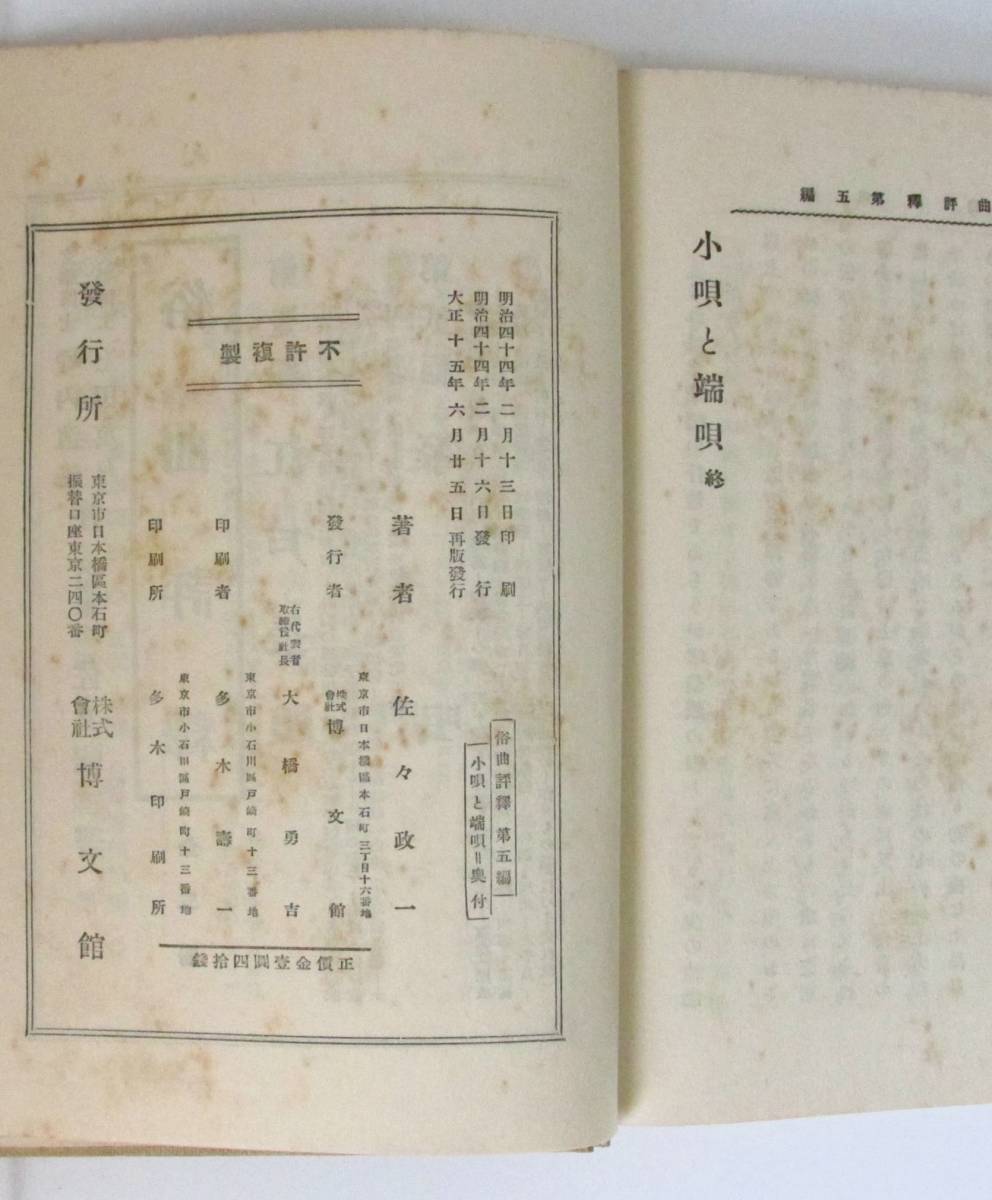 曲評釋第五編
小唄と端唄 終
明治四十四年二月十三日印刷
明治四十四年二月十六日發行
大正十五年六月廿五日再版發行
俗曲評釋 第五編
小唄と端唄=奥付
不許複製
著者 佐々政一
東京市日本橋區本石町三丁目十六番地
發行者 株式會社 博文館
右代表者 取締役社長 大橋勇吉
東京市小石川區戸崎町十三番地
印刷者 多木壽一
東京市小石川區戸崎町十三番地
印刷所 多木印刷所
正價金壹圓四拾錢
發行所
東京市日本橋區本石町
振替口座東京二四〇番
株式會社 博文館